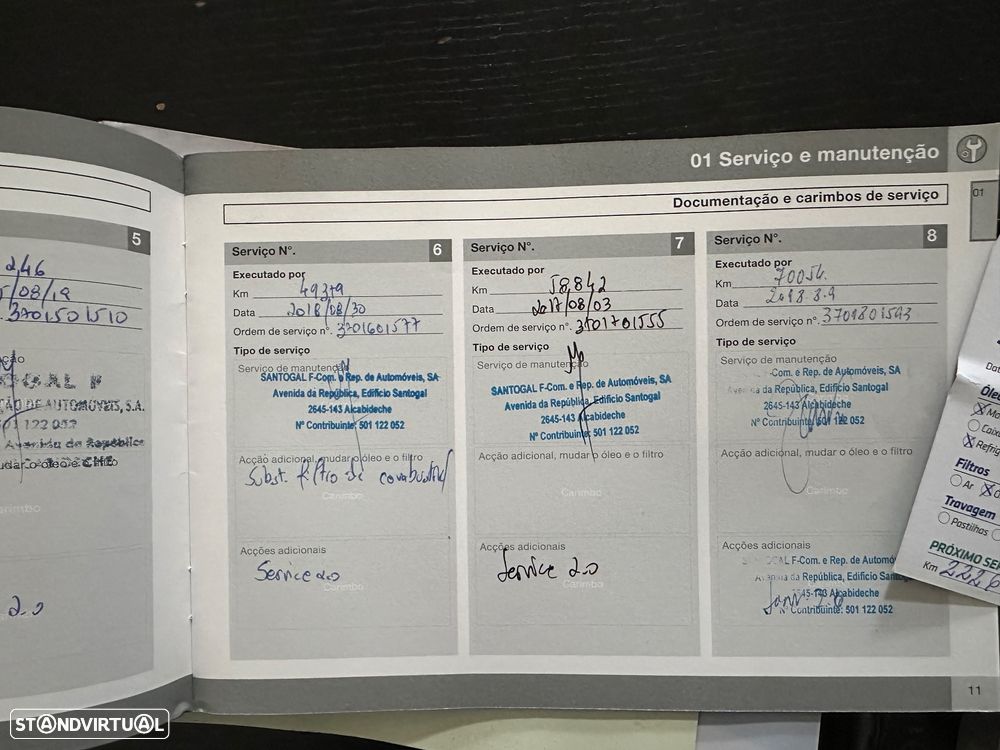 01 Serviço e manutenção
01
Documentação e carimbos de serviço
5
246
/08/19
3701501510
ação
AUTOMÓVEIS, S.A.
122 057
Carimbo
2.0
Serviço N°. 6
Executado por
Km 49379
Data 2018/08/30
Ordem de serviço n°. 3701601577
Tipo de serviço
Serviço de manutenção
SANTOGAL F-Com. e Rep. de Automóveis, SA
Avenida da República, Edifício Santogal
2645-143 Alcabideche
N° Contribuinte: 501 122 052
Acção adicional, mudar o óleo e o filtro
Subst. filtro de combustível
Carimbo
Acções adicionais
Service 2.0
Carimbo
Serviço N°. 7
Executado por
Km 58.842
Data 2017/08/03
Ordem de serviço n°. 3701701555
Tipo de serviço
Serviço de manutenção
SANTOGAL F-Com. e Rep. de Automóveis, SA
Avenida da República, Edifício Santogal
2645-143 Alcabideche
N° Contribuinte: 501 122 052
Acção adicional, mudar o óleo e o filtro
Carimbo
Acções adicionais
Service 2.0
Carimbo
Serviço N°. 8
Executado por
Km 70054
Data 2018.8.9
Ordem de serviço n°. 3701801593
Tipo de serviço
Serviço de manutenção
-Com. e Rep. de Automóveis, SA
Avenida da República, Edifício Santogal
2645-143 Alcabideche
N° Contribuinte: 501 122 052
Acção adicional, mudar o óleo e o filtro
Carimbo
Acções adicionais
GAL F-Com. e Rep. de Automó
Avenida da República, Edifício San
2645-143 Alcabideche
N° Contribuinte: 501 122 052
11
Dat
Óle
Mo
Caixa
Refrig
Filtros
Ar
Travagem
Pastilhas
PRÓXIMO SE
Km 222
STANDVIRTUAL